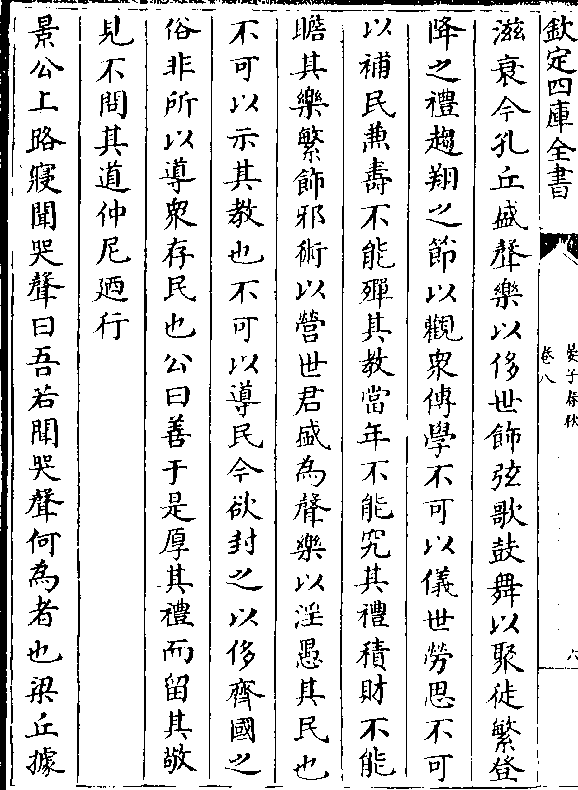 欽定四庫全書
晏子春秋
卷八
六
滋衰今孔丘盛聲樂以侈世飾弦歌鼓舞以聚徒繁登
降之禮趨翔之節以觀衆傳學不可以儀世勞思不可
以補民兼壽不能殫其教當年不能究其禮積財不能
贍其樂繁飾邪術以營世君盛為聲樂以淫愚其民也
不可以示其教也不可以導民今欲封之以侈齊國之
俗非所以導衆存民也公曰善于是厚其禮而留其敬
見不問其道仲尼廼行
景公上路寢聞哭聲曰吾若聞哭聲何為者也梁丘據